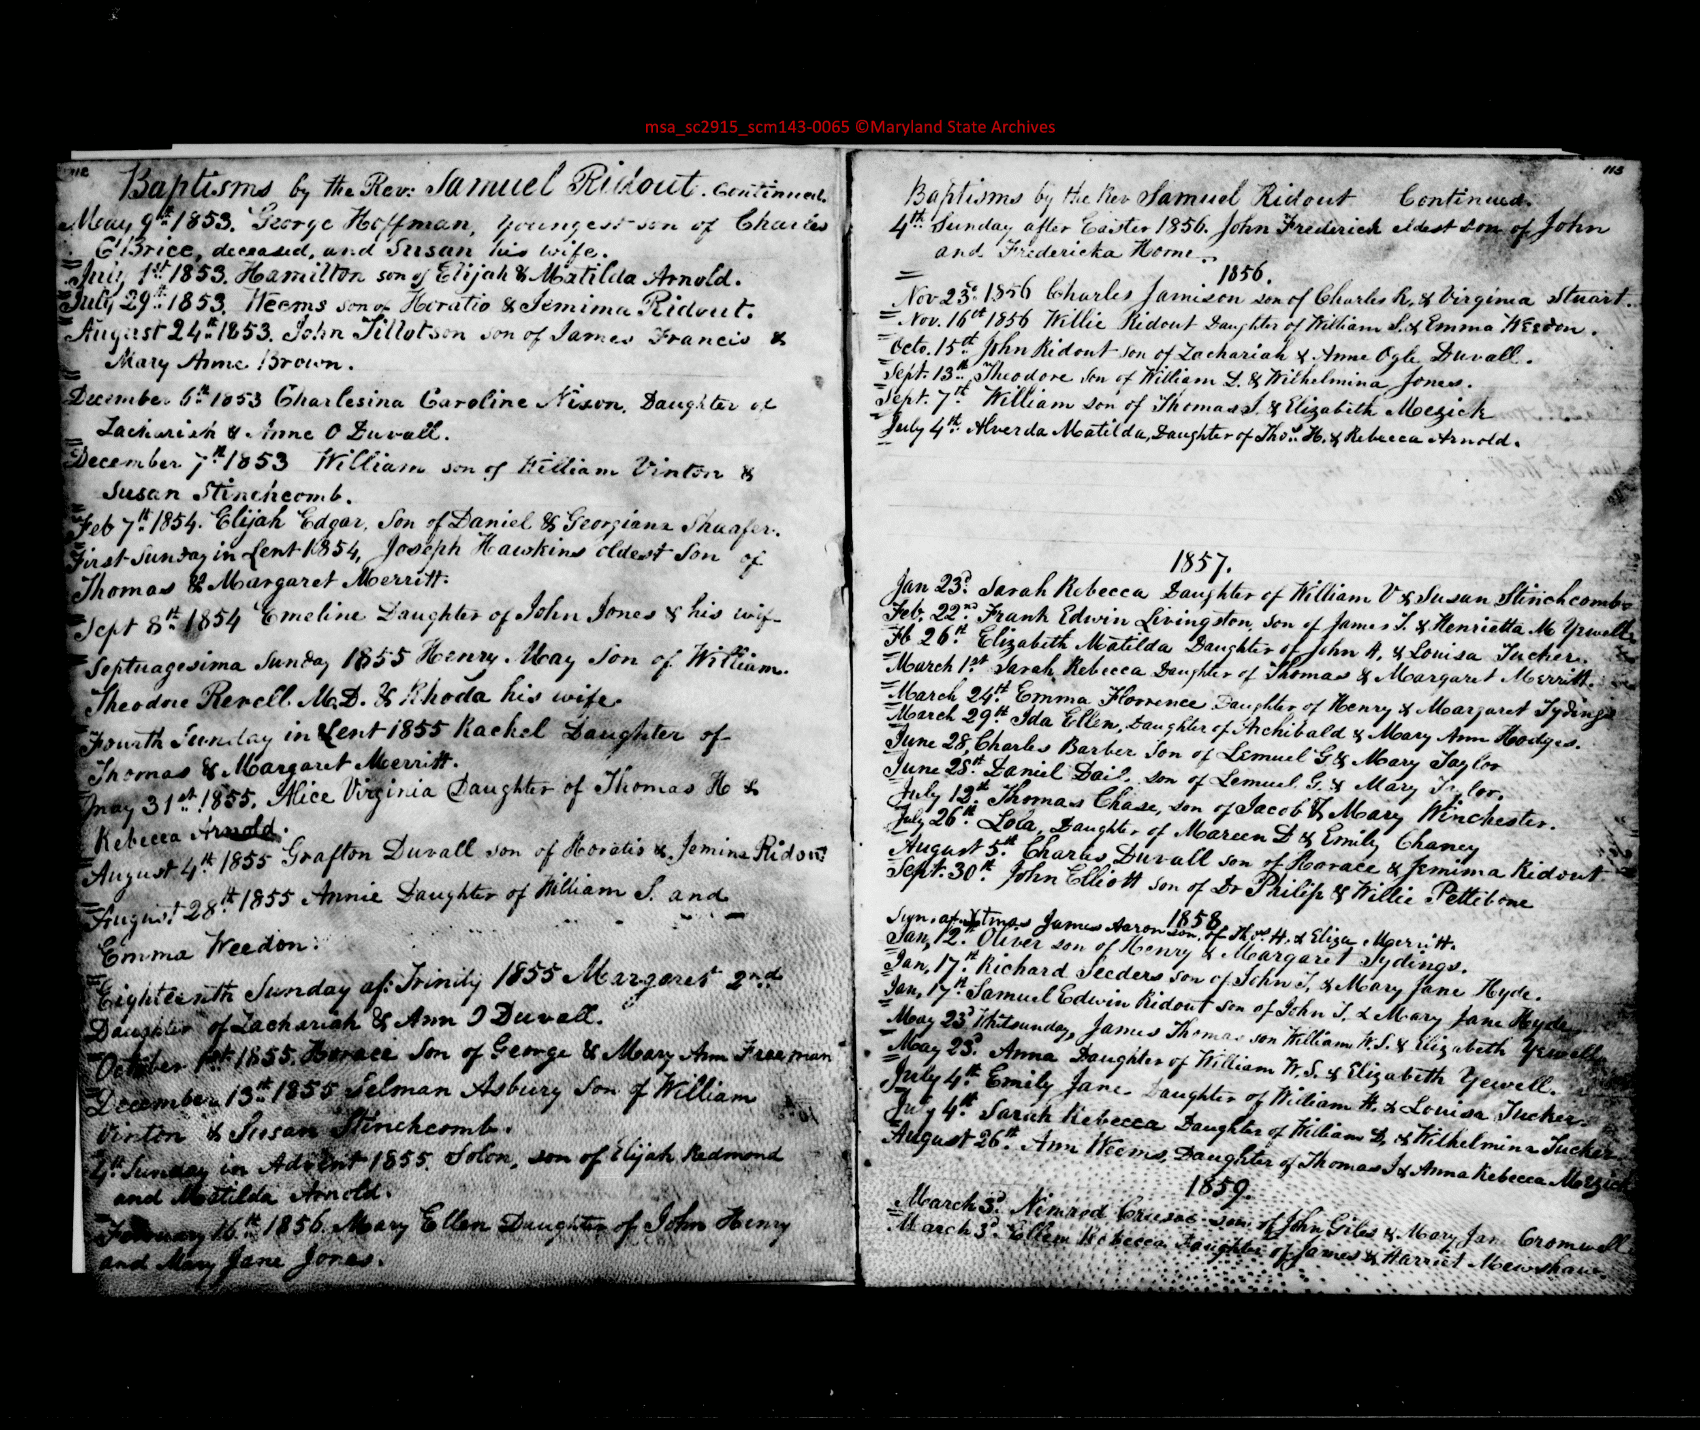 msa_sc2915_scm143-0065 ©Maryland State Archives
112
Baptisms by the Rev: Samuel Ridout. Continued.
May 9th 1853. George Hoffman, youngest son of Charles
C. Brice, deceased, and Susan his wife.
July 1st 1853. Hamilton son of Elijah & Matilda Arnold.
July 29th 1853. Weems son of Horatio & Jemima Ridout.
August 24th 1853. John Tillotson son of James Francis &
Mary Anne Brown.
December 6th 1853 Charlesina Caroline Nixon, Daughter of
Zachariah & Anne O Duvall.
December 7th 1853 William son of William Vinton &
Susan Stinchcomb.
Feb 7th 1854. Elijah Edgar, Son of Daniel & Georgiana Shaafer.
First Sunday in Lent 1854, Joseph Hawkins oldest Son of
Thomas & Margaret Merritt.
Sept 8th 1854 Emeline Daughter of John Jones & his wife
Septuagesima Sunday 1855 Henry May Son of William
Theodore Revell M.D. & Rhoda his wife
Fourth Sunday in Lent 1855 Rachel Daughter of
Thomas & Margaret Merritt.
May 31st 1855. Alice Virginia Daughter of Thomas H &
Rebecca Arnold.
August 4th 1855 Grafton Duvall son of Horatio & Jemima Ridout
August 28th 1855 Annie Daughter of William S. and
Emma Weedon.
Eighteenth Sunday af: Trinity 1855 Margaret 2nd
Daughter of Zachariah & Ann O Duvall.
October 1st 1855. Horace Son of George & Mary Ann Freeman
December 13th 1855 Selman Asbury Son of William
Vinton & Susan Stinchcomb.
2th Sunday in Advent 1855. Solon, son of Elijah Redmond
and Matilda Arnold.
February 16th 1856. Mary Ellen Daughter of John Henry
and Mary Jane Jones.
113
Baptisms by the Rev Samuel Ridout Continued.
4th Sunday after Easter 1856. John Frederick eldest son of John
and Fredericka Horne.
1856.
Nov 23d 1856 Charles Jamison son of Charles R. & Virginia Stuart.
Nov. 16th 1856 Willie Ridout Daughter of William S. & Emma Weedon.
Octo. 15th John Ridout son of Zachariah & Anne Ogle Duvall.
Sept. 13th Theodore son of William D. & Wilhelmina Jones.
Sept. 7th William son of Thomas J. & Elizabeth Mezick
July 4th Alverda Matilda, Daughter of Thos. H. & Rebecca Arnold.
1857.
Jan 23d Sarah Rebecca Daughter of William V & Susan Stinchcomb
Feb. 22nd Frank Edwin Livingston, son of James T. & Henrietta M Yewell
Fb 26th Elizabeth Matilda Daughter of John A. & Louisa Tucker.
March 1st Sarah Rebecca Daughter of Thomas & Margaret Merritt.
March 24th Emma Florence Daughter of Henry & Margaret Tydings
March 29th Ida Ellen, Daughter of Archibald & Mary Ann Hodges.
June 28, Charles Barber Son of Lemuel G & Mary Taylor
June 28th Daniel Dail. son of Lemuel G. & Mary Taylor.
July 12th Thomas Chase, son of Jacob & Mary Winchester.
July 26th Lola, Daughter of Mareen D & Emily Chaney
August 5th Charles Duvall son of Horace & Jemima Ridout
Sept. 30th John Elliott son of Dr Philip & Willie Pettibone
1858
Sun. af. Xtmas James Aaron son of Thos H. & Eliza Merritt.
Jan, 12th Oliver son of Henry & Margaret Tydings.
Jan, 17th Richard Seeders son of John T. & Mary Jane Hyde.
Jan, 17th Samuel Edwin Ridout son of John T. & Mary Jane Hyde
May 23d Whitsunday, James Thomas son William W. S. & Elizabeth Yewell
May 23d Anna Daughter of William W. S. & Elizabeth Yewell.
July 4th Emily Jane Daughter of William H. & Louisa Tucker.
July 4th Sarah Rebecca Daughter of William D. & Wilhelmina Tucker
August 26th Ann Weems, Daughter of Thomas J & Anna Rebecca Mezick
1859.
March 3d Nimrod Crusoe son of John Giles & Mary Jane Cromwell
March 3d Ellen Rebecca Daughter of James & Harriet Mewshaw.